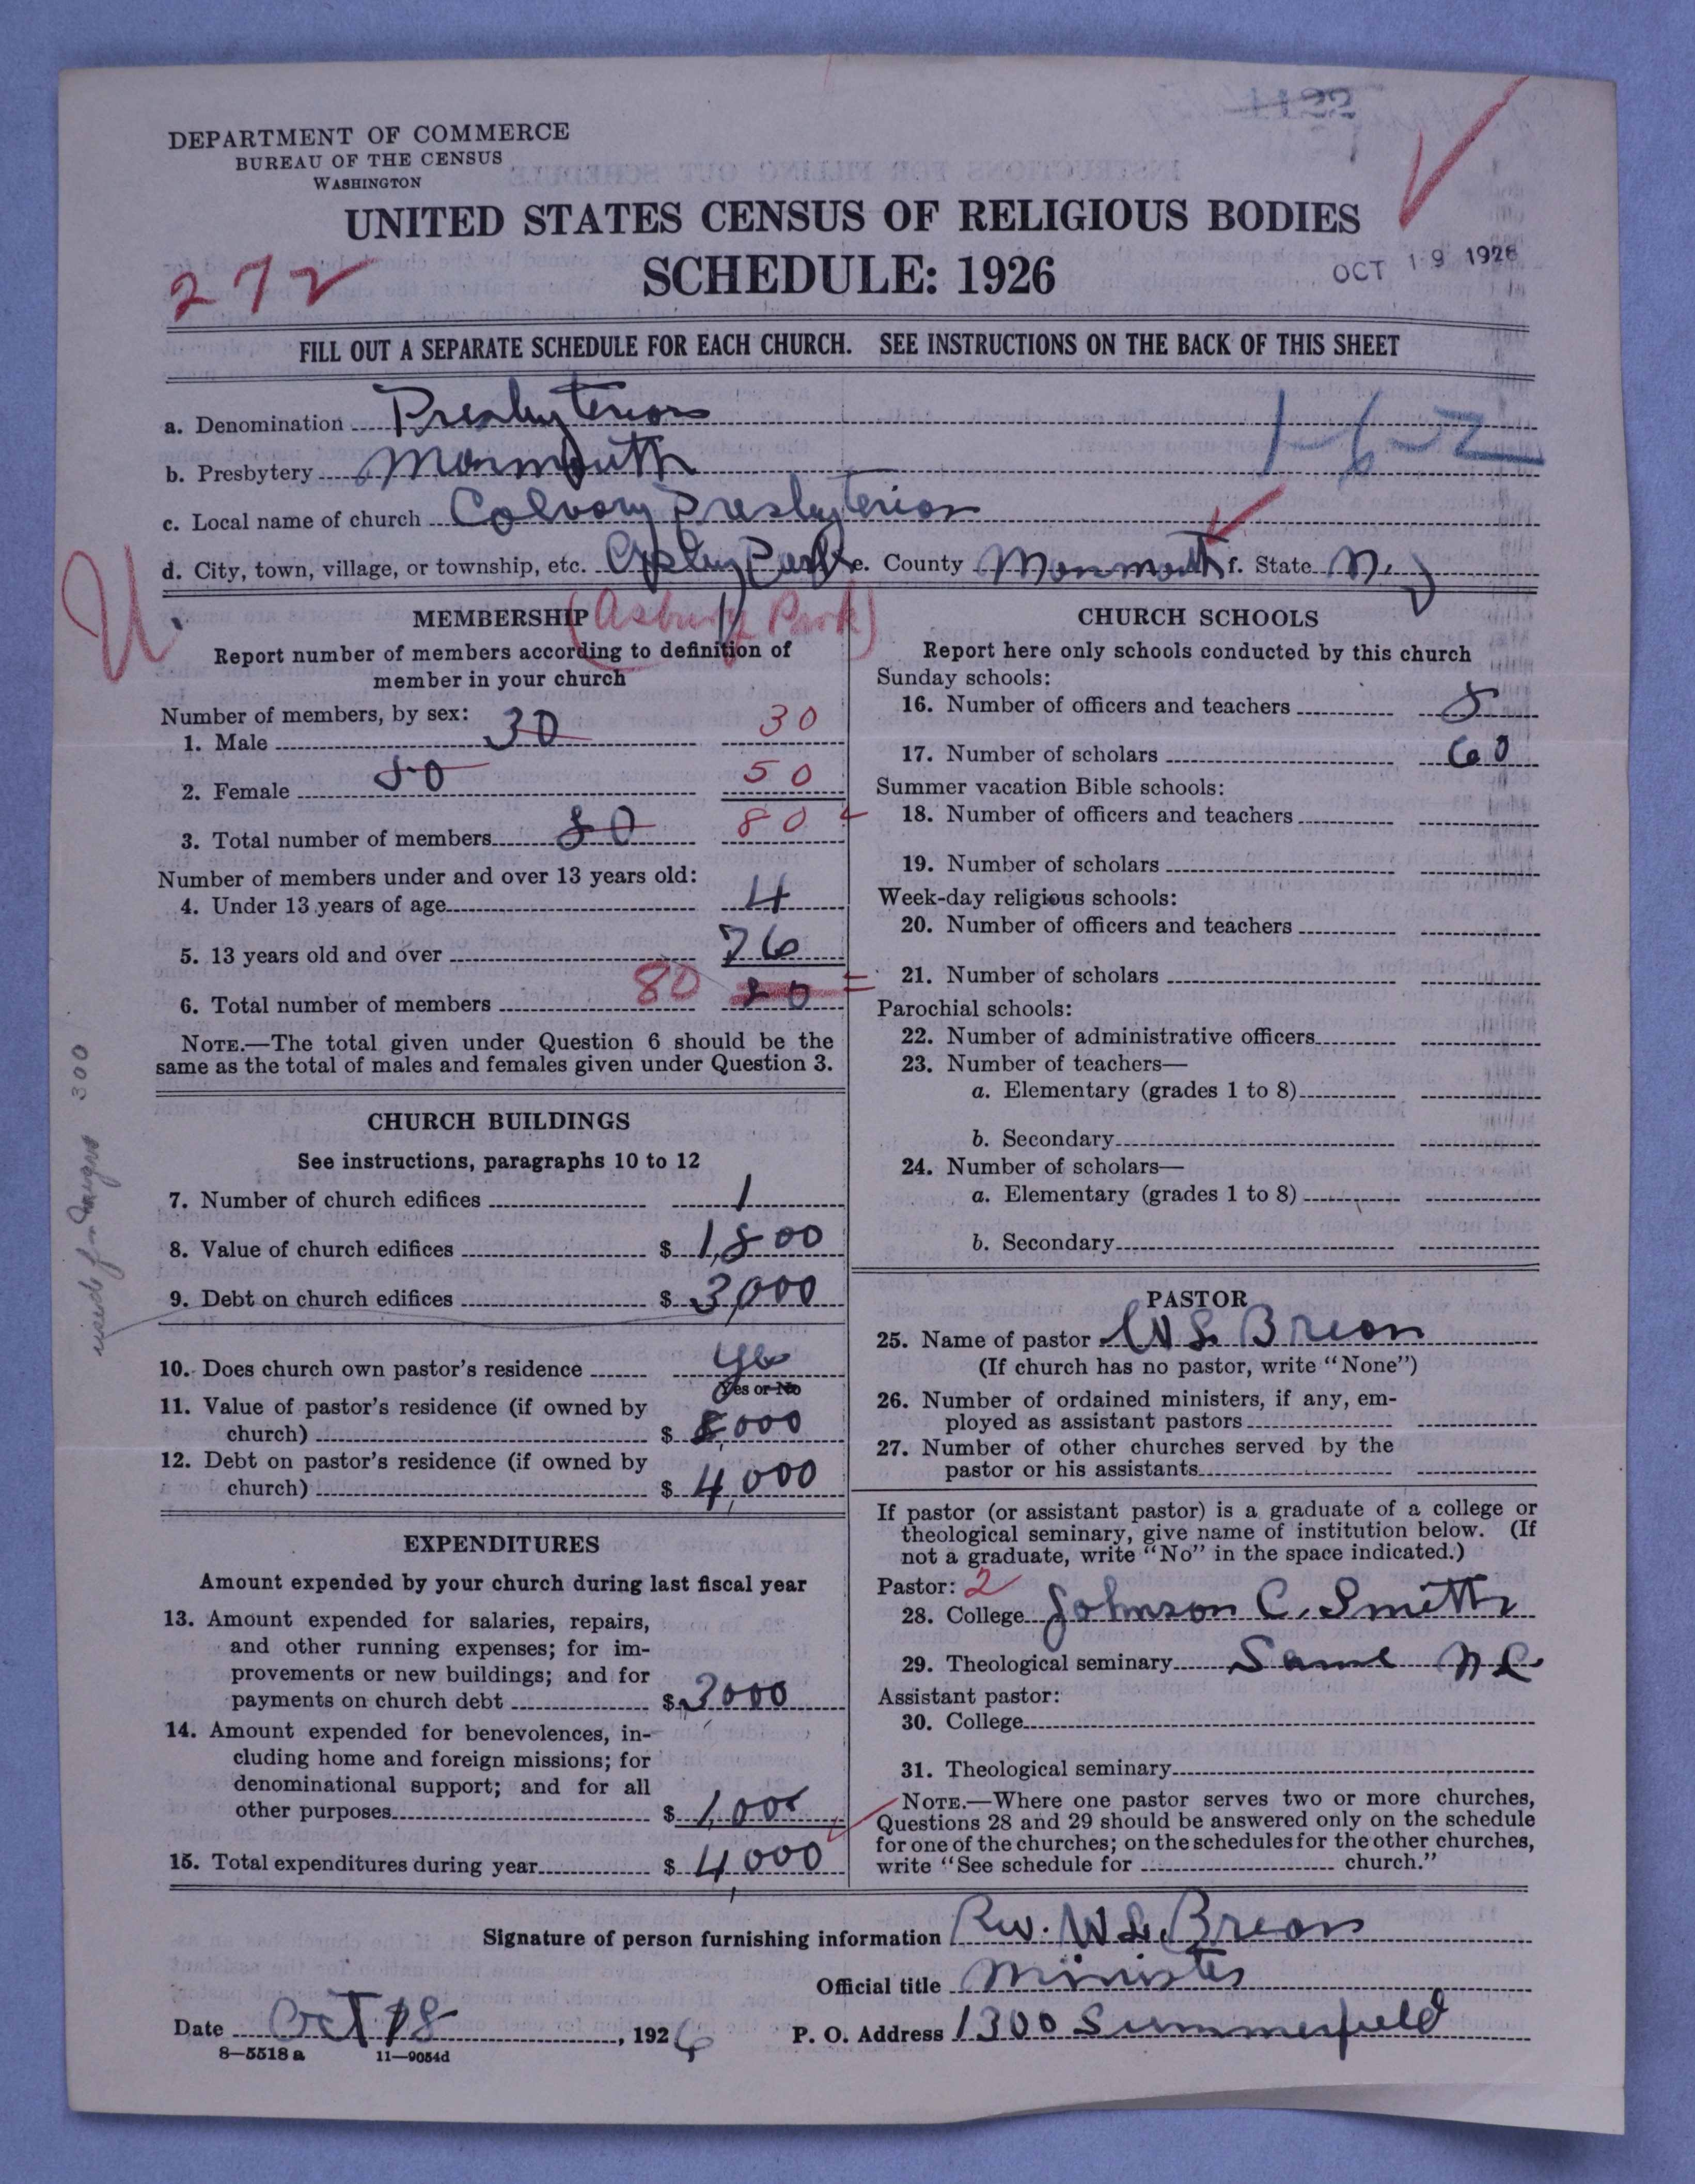 DEPARTMENT OF COMMERCE
BUREAU OF THE CENSUS
WASHINGTON
UNITED STATES CENSUS OF RELIGIOUS BODIES
SCHEDULE: 1926
272
OCT 19 1926
FILL OUT A SEPARATE SCHEDULE FOR EACH CHURCH. SEE INSTRUCTIONS ON THE BACK OF THIS SHEET
a. Denomination Presbyterian
1-6-2
b. Presbytery Monmouth
c. Local name of church Calvary Presbyterian
d. City, town, village, or township, etc. Asbury Park e. County Monmouth f. State N.J
(Asbury Park)
U.
MEMBERSHIP
Report number of members according to definition of
member in your church
Number of members, by sex:
1. Male 30 30
2. Female 50 50
3. Total number of members 80 80
Number of members under and over 13 years old:
4. Under 13 years of age 4
5. 13 years old and over 76
6. Total number of members 80 80
NOTE.—The total given under Question 6 should be the
same as the total of males and females given under Question 3.
CHURCH BUILDINGS
See instructions, paragraphs 10 to 12
7. Number of church edifices 1
8. Value of church edifices $ 1,800
9. Debt on church edifices $ 3,000
10. Does church own pastor's residence Yes
Yes or No
11. Value of pastor's residence (if owned by
church) $ 8,000
12. Debt on pastor's residence (if owned by
church) $ 4,000
300
EXPENDITURES
Amount expended by your church during last fiscal year
13. Amount expended for salaries, repairs,
and other running expenses; for im-
provements or new buildings; and for
payments on church debt $ 3000
14. Amount expended for benevolences, in-
cluding home and foreign missions; for
denominational support; and for all
other purposes $ 1,000
15. Total expenditures during year $ 4,000
CHURCH SCHOOLS
Report here only schools conducted by this church
Sunday schools:
16. Number of officers and teachers 8
17. Number of scholars 60
Summer vacation Bible schools:
18. Number of officers and teachers
19. Number of scholars
Week-day religious schools:
20. Number of officers and teachers
21. Number of scholars
Parochial schools:
22. Number of administrative officers
23. Number of teachers—
a. Elementary (grades 1 to 8)
b. Secondary
24. Number of scholars—
a. Elementary (grades 1 to 8)
b. Secondary
PASTOR
25. Name of pastor W L Breon
(If church has no pastor, write "None")
26. Number of ordained ministers, if any, em-
ployed as assistant pastors
27. Number of other churches served by the
pastor or his assistants
If pastor (or assistant pastor) is a graduate of a college or
theological seminary, give name of institution below. (If
not a graduate, write "No" in the space indicated.)
Pastor: 2
28. College Johnson C. Smith
29. Theological seminary Same N C
Assistant pastor:
30. College
31. Theological seminary
NOTE.—Where one pastor serves two or more churches,
Questions 28 and 29 should be answered only on the schedule
for one of the churches; on the schedules for the other churches,
write "See schedule for church."
Signature of person furnishing information Rev. W L. Breon
Official title Minister
Date Oct 18, 1926 P. O. Address 1300 Summerfield
8—5518 a 11—9054d